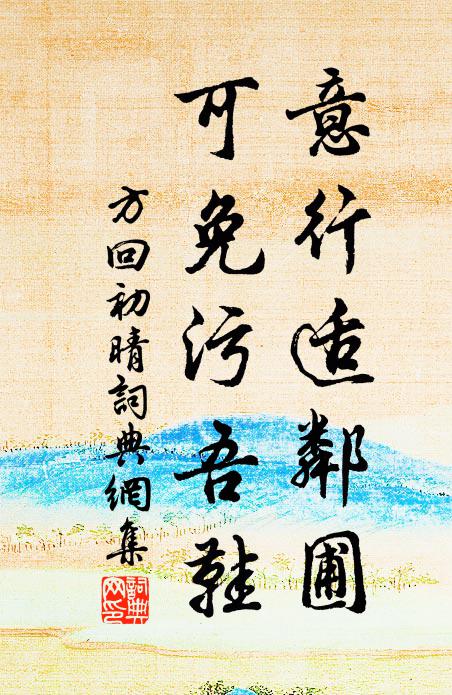 意行适鄰圃
可免污吾鞋
方回初晴詞典網集
詞典網印